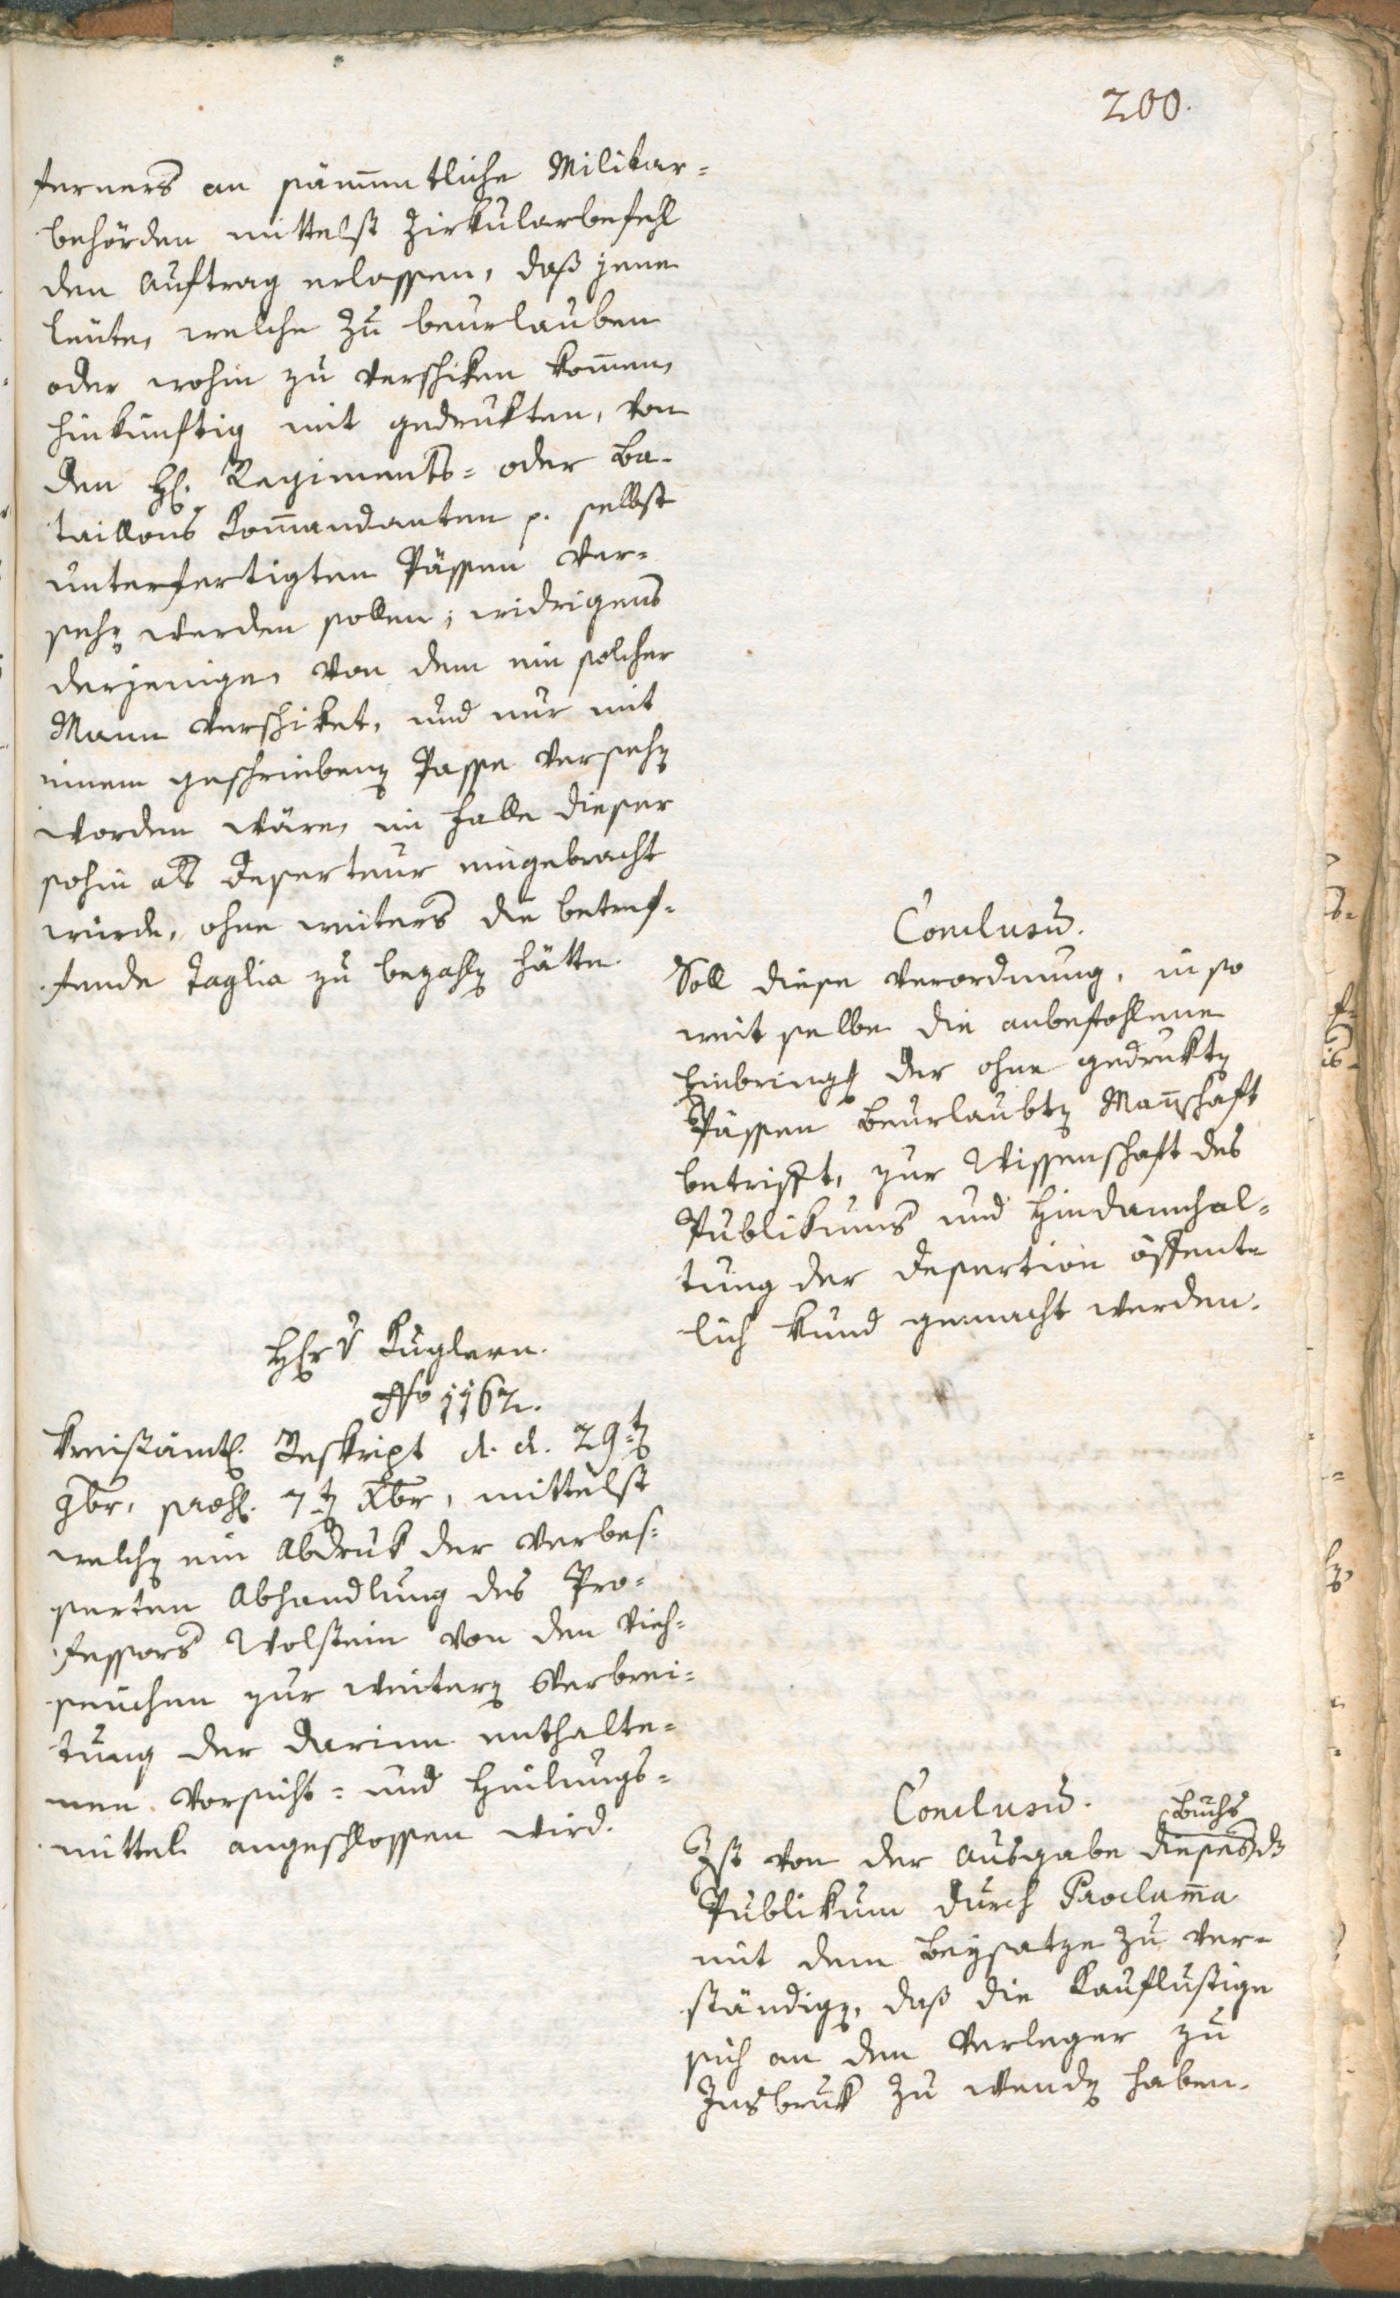 200.
ferners an sämmtliche Militar=
behörden mittelst Zirkularbefehl
den Auftrag erlassen, daß jene
Leute, welche zu beurlauben
oder wohin zu verschiken kom̅en,
hinkünftig mit gedrukten, von
den H. Regiments= oder Ba=
taillons Kom̅andanten p. selbst
unterfertigten Pässen ver=
sehen werden sollen; widrigens
derjenige, von dem ein solcher
Mann verschiket, und nur mit
einem geschriebenen Passe versehen
worden wäre, im Falle dieser
sohin als Deserteur eingebracht
würde, ohne weiters die betref=
fende Taglia zu bezahlen hätte.
Conclusum.
Soll diese Verordnung, in so
weit selbe die anbefohlene
Einbringung der ohne gedrukten
Pässen Beurlaubten Man̅schaft
betrifft, zur Wissenschaft des
Publikums und Hindannhal=
tung der Desertion öffent=
lich kund gemacht werden.
Hr. v Kuglern.
No 1162.
Kreisämtl. Reskript d. d. 29ten
9br, praes. 7ten Xbr, mittelst
welchen ein Abdruk der verbes=
serten Abhandlung des Pro=
fessors Wolstein von den Vieh=
seuchen zur weiteren Verbrei=
tung der darinn enthalte=
nen Vorsicht= und Heilungs=
mittel angeschlossen wird.
Conclusum.
Buchs
Ist von der Ausgabe dieses das
Publikum durch Proclam̅a
mit dem Beysatze zu ver=
ständigen, daß die Kauflustige
sich an den Verleger zu
Insbruk zu wenden haben.